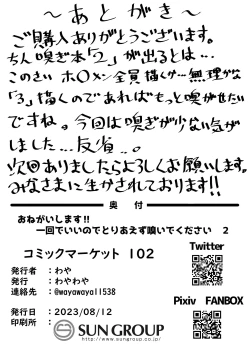 ～あとがき～
ご購入ありがとうございます。
ちん嗅ぎ本「2」が出るとは…
このさい ホ〇メン全員描くか…無理かな
「3」描くのであればもっと嗅がせたい
ですね。今回は嗅ぎが少ない気が
しました…反省…。
次回ありましたらよろしくお願いします。
みなさまに生かされております!!
奥付
おねがいします!!
一回でいいのでとりあえず嗅いでください 2
コミックマーケット 102
発行者 :わや
発行 :わやわや
連絡先 :@wayawaya11538
発行日 :2023/08/12
印刷所 :
SUN GROUP
http://www.sungroup.co.jp/
Twitter
Pixiv FANBOX